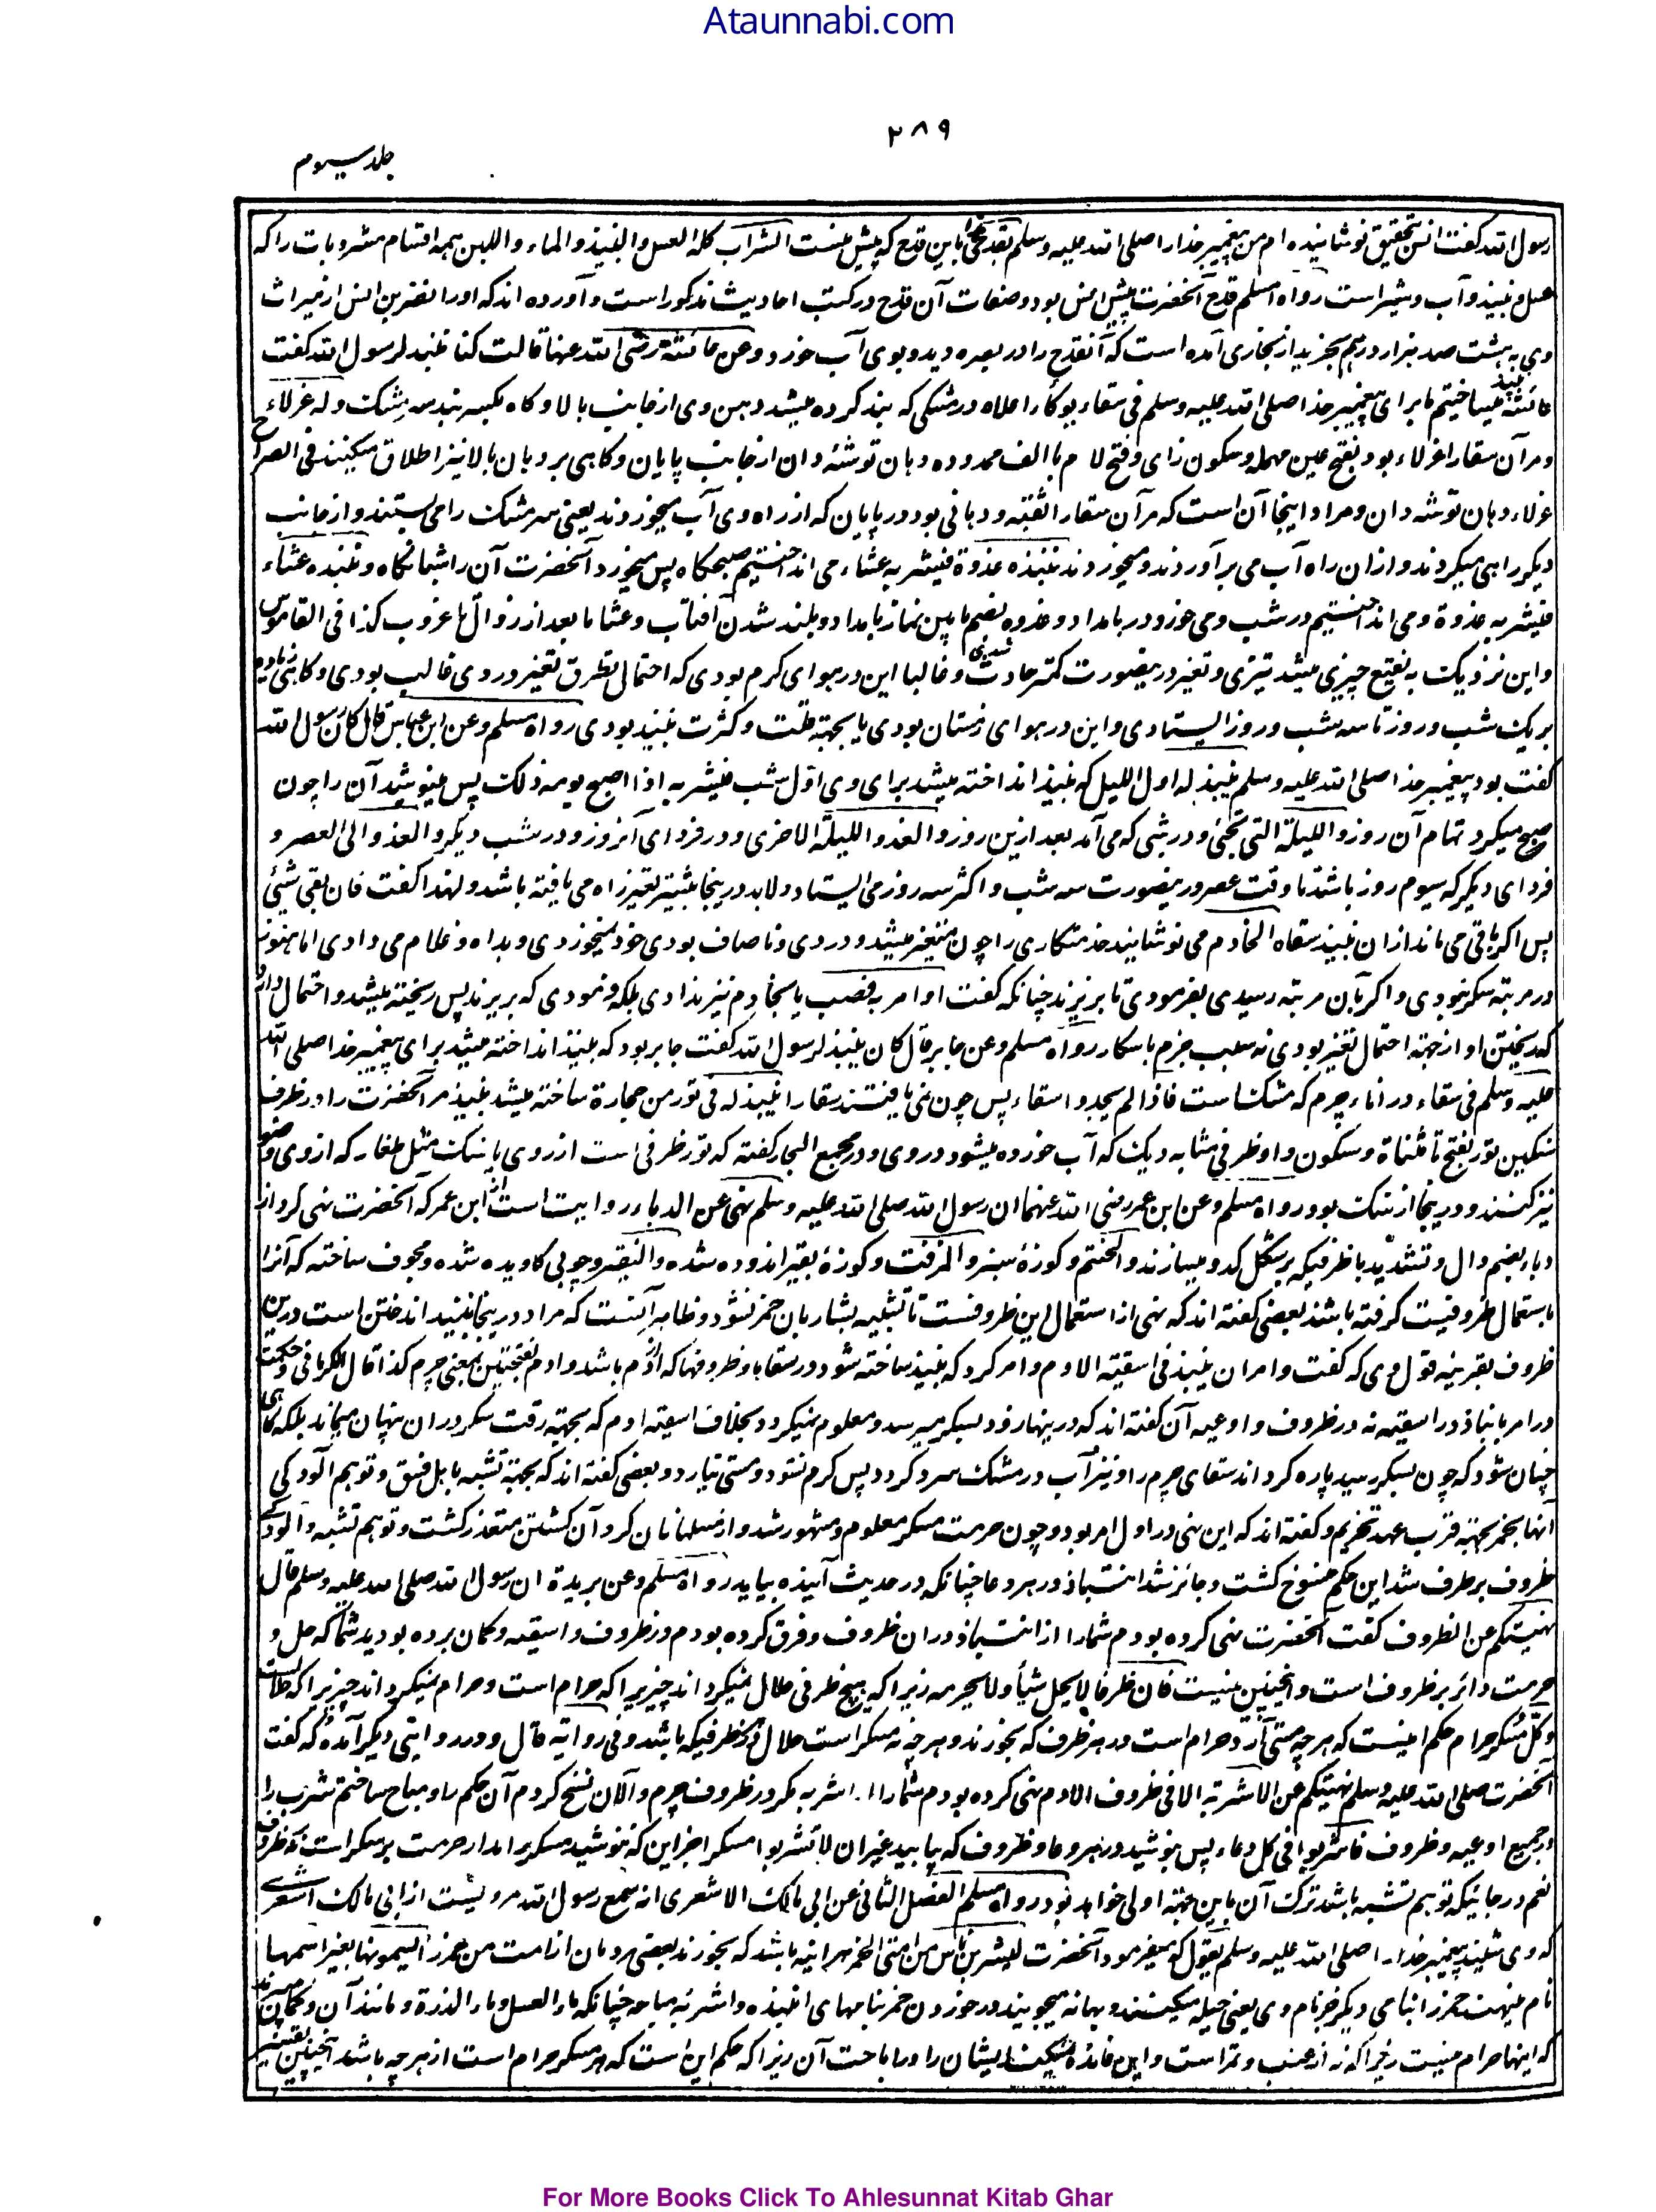 Ataunnabi.com
۲۸۹
جلد سیوم
رسول الله گفت انس بتحقیق نوشانیده ام من پیغمبر خدا را صلی الله علیه وسلم بقدحی هذا باین قدح که پیش منست الشراب کله العسل والنبیذ والماء واللبن همه اقسام مشروبات را که
عسل و نبیذ و آب و شیر است رواه مسلم قدح آنحضرت پیش انس بود و صفات آن قدح در کتب احادیث مذکور است و آورده اند که او را نضر بن انس از میراث
وی به هشت صد هزار درهم بخرید از بخاری آمده است که آنقدح را در بصره دید و بوی آب خورد وعن عائشة رضی الله عنها قالت کنا ننبذ لرسول الله گفت
عائشه نبیذ میساختیم ما برای پیغمبر خدا صلی الله علیه وسلم فی سقاء یوکأ اعلاه در مشکی که بند کرده میشد دهن وی از جانب بالا وکاء بکسر بند سر مشک وله عزلاء
و مر آن سقا را عزلاء بود بفتح عین مهمله و سکون زای و فتح لام با الف ممدوده دهان توشه دان از جانب پایان و کاهی بر دهان بالا نیز اطلاق میکنند فی الصراح
عزلاء دهان توشه دان و مراد اینجا آن است که مر آن سقا را ثقبه و دهانی بود در پایان که از راه وی آب میخوردند یعنی سر مشک را می بستند و از جانب
دیگر راهی میکردند و ازان راه آب می برآوردند و میخوردند ننبذه غدوة فیشربه عشاء می انداختیم صبحگاه پس میخورد آنحضرت آن را شبانگاه و ننبذه عشاء
فیشربه غدوة و می انداختیم در شب و می خورد در بامداد و غدوه بضم ما بین نماز بامداد و بلند شدن آفتاب و عشا ما بعد از زوال تا غروب کذا فی القاموس
و این نزدیک به نقیع چیزی میشد تیزی و تغیر درینصورت کمتر حادث شدی و غالبا این در هوای گرم بودی که احتمال تطرق تغیر در وی غالب بودی و کاهی زیاده
بر یک شب و روز تا سه شب و روز ایستادی و این در هوای زمستان بودی یا بجهته قلت و کثرت نبیذ بودی رواه مسلم وعن ابن عباس قال کان رسول الله
گفت بود پیغمبر خدا صلی الله علیه وسلم ینبذ له اول اللیل که نبیذ انداخته میشد برای وی اول شب فیشربه اذا اصبح یومه ذلک پس مینوشید آن را چون
صبح میکرد تمام آن روز واللیلة التی تجئ و در شبی که می آمد بعد ازین روز والغد واللیلة الاخری و در فردای آنروز و در شب دیگر والغد الی العصر و
فردای دیگر که سیوم روز باشد تا وقت عصر درینصورت سه شب و اکثر سه روز می ایستاد و لابد درینجا بیشتر تغیر راه می یافته باشد و لهذا گفت فان بقی شیئ
پس اگر باقی می ماند ازان نبیذ سقاه الخادم می نوشانید خدمتکاری را چون متغیر میشد و دردی و ناصاف بودی خود نمیخوردی و بداه و غلام می دادی اما هنوز
در مرتبه سکر نبودی و اگر بآن مرتبه رسیدی بفرمودی تا بریزند چنانکه گفت او امر به فصب یا بخادم نیز ندادی بلکه فرمودی که بریزند پس ریخته میشد و احتمال دارد
که ریختن او از جهته احتمال تغیر بودی نه سبب جزم باسکار رواه مسلم وعن جابر قال کان ینبذ لرسول الله گفت جابر بود که نبیذ انداخته میشد برای پیغمبر خدا صلی الله
علیه وسلم فی سقاء در اناء چرم که مشک است فاذا لم یجدوا سقاء پس چون نمی یافتند سقا را ینبذ له فی تور من حجارة ساخته میشد نبیذ مر آنحضرت را در ظرف
سنگین تور بفتح تا مثناة و سکون واو ظرفی مشابه دیگ که آب خورده میشود در وی و در مجمع البحار گفته که تور ظرفی است از روی یا سنگ مثل طغار که از وی وضو
نیز کنند و درینجا از سنگ بود رواه مسلم وعن ابن عمر رضی الله عنهما ان رسول الله صلی الله علیه وسلم نهی عن الدباء روایت است از ابن عمر که آنحضرت نهی کرد از
دباء بضم دال و تشدید با ظرفیکه بر شکل کدو میسازند والحنتم و کوزۀ سبز والمزفت و کوزۀ بقیر اندوده شده والنقیر و چوبی کاویده شده و مجوف ساخته که آنرا
باستعمال ظرفیت گرفته باشند بعضی گفته اند که نهی از استعمال این ظروفست تا تشبیه بشاربان خمر نشود و ظاهر آنست که مراد درینجا نبیذ انداختن است درین
ظروف بقرینه قول وی که گفت وامر ان ینبذ فی اسقیة الادم و امر کرد که نبیذ ساخته شود در سقاها و ظروفها که از ادم باشد و ادم بفتحتین بمعنی چرم کذا قال الکرمانی و حکمت
در امر بانباذ در اسقیه نه در ظروف و اوعیه آن گفته اند که درینها زود بسکر میرسد و معلوم نمیگردد بخلاف اسقیه ادم که بجهته رقت سکر دران پنهان نمیماند بلکه گاهی
چنان شود که چون بسکر رسید پاره گرداند سقای چرم را و نیز آب در مشک سرد گردد پس گرم نشود و مستی نیارد و بعضی گفته اند که بجهته تشبه باهل فسق و توهم آلودگی
آنها بخمر بجهته قرب عهد تحریم و گفته اند که این نهی در اول امر بود و چون حرمت مسکر معلوم و مشهور شد و از مسلمانان گرد آن گشتن متعذر گشت و توهم تشبه و آلودگی
ظروف برطرف شد این حکم منسوخ گشت و جائز شد انتباذ در هر وعا چنانکه در حدیث آینده بیاید رواه مسلم وعن بریدة ان رسول الله صلی الله علیه وسلم قال
نهیتکم عن الظروف گفت آنحضرت نهی کرده بودم شما را از انتباذ دران ظروف و فرق کرده بودم در ظروف و اسقیه و گمان برده بودید شما که حل و
حرمت دائر بر ظروف است و اینچنین نیست فان ظرفا لا یحل شیأ ولا یحرمه زیرا که هیچ ظرفی حلال نمیگرداند چیزیرا که حرام است و حرام نمیگرداند چیزیرا که حلال است
وکل مسکر حرام حکم اینست که هر چه مستی آرد حرام است در هر ظرف که بخورند و هر چه نه مسکر است حلال در هر ظرفیکه باشد وفی روایة قال و در روایتی دیگر آمده که گفت
آنحضرت صلی الله علیه وسلم نهیتکم عن الاشربة الا فی ظروف الادم نهی کرده بودم شما را از اشربه مگر در ظروف چرم والآن نسخ کردم آن حکم را و مباح ساختم شرب را
در جمیع اوعیه و ظروف فاشربوا فی کل وعاء پس بنوشید در هر وعا و ظروف که بیابید غیر ان لا تشربوا مسکرا جز این که ننوشید مسکر را مدار حرمت بر مسکر است نه ظروف
نعم در جائیکه توهم تشبه باشد ترک آن باین جهته اولی خواهد بود رواه مسلم الفصل الثانی عن ابی مالک الاشعری انه سمع رسول الله مرویست از ابی مالک اشعری
که وی شنید پیغمبر خدا را صلی الله علیه وسلم یقول که میفرمود آنحضرت لیشربن ناس من امتی الخمر هر اینه باشد که بخورند بعضی مردمان از امت من خمر را یسمونها بغیر اسمها
نام مینهند خمر را بنامی دیگر جز نام وی یعنی حیله میکنند و بهانه میجویند در خوردن خمر بنامهای انبذه و اشربه مباحه چنانکه ماء العسل و ماء الذرة و مانند آن و گمان میبرند
که اینها حرام نیست زیرا که نه از عنب و تمر است و این فائده نمیکند ایشان را در اباحت آن زیرا که حکم این است که هر مسکر حرام است از هر چه باشد اینچنین تفسیر
For More Books Click To Ahlesunnat Kitab Ghar